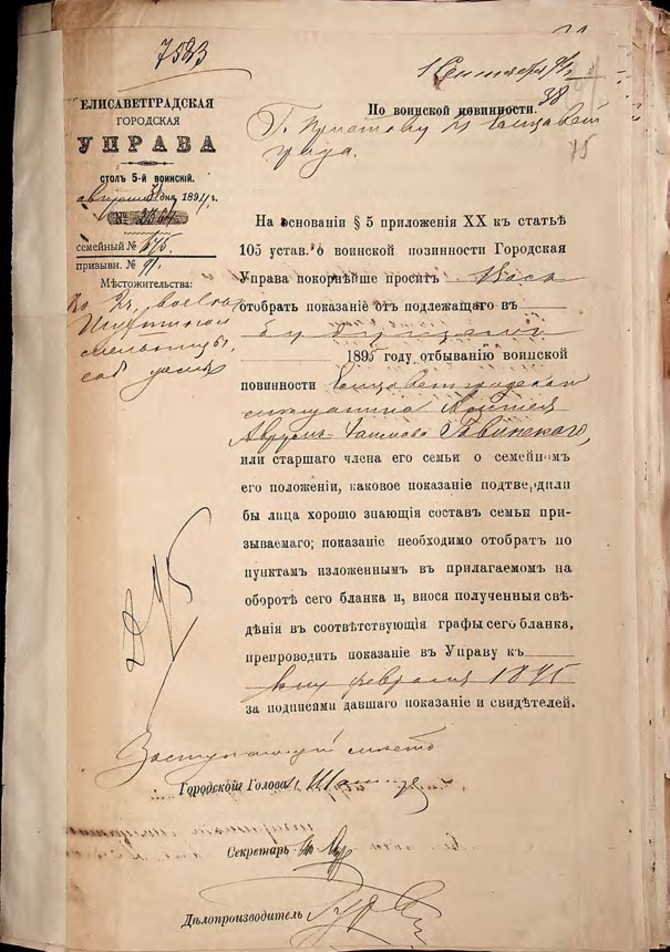 7583
1 Сентября
ЕЛИСАВЕТГРАДСКАЯ
ГОРОДСКАЯ
УПРАВА
СТОЛЪ 5-й ВОИНСКІЙ.
августа 31 дня 1894 г.
№
семейный № 675.
призывн. № 91.
Мѣстожительства:
По воинской повинности.
38
75
Г. Приставу 2 Елисавет
града.
На основаніи § 5 приложенія XX къ статьѣ
105 устав. о воинской повинности Городская
Управа покорнѣйше проситъ Васъ
отобрать показаніе отъ подлежащаго въ
будущемъ
1895 году отбыванію воинской
повинности Елисаветградскаго
мѣщанина
Аврумъ-Хаимова
или старшаго члена его семьи о семейномъ
его положеніи, каковое показаніе подтвердили
бы лица хорошо знающія составъ семьи при-
зываемаго; показаніе необходимо отобрать по
пунктамъ изложеннымъ въ прилагаемомъ на
оборотѣ сего бланка и, внося полученныя свѣ-
дѣнія въ соотвѣтствующія графы сего бланка,
препроводить показаніе въ Управу къ
февраля 1895
за подписями давшаго показаніе и свидѣтелей.
Заступающій мѣсто
Городскій Голова
Секретарь
Дѣлопроизводитель